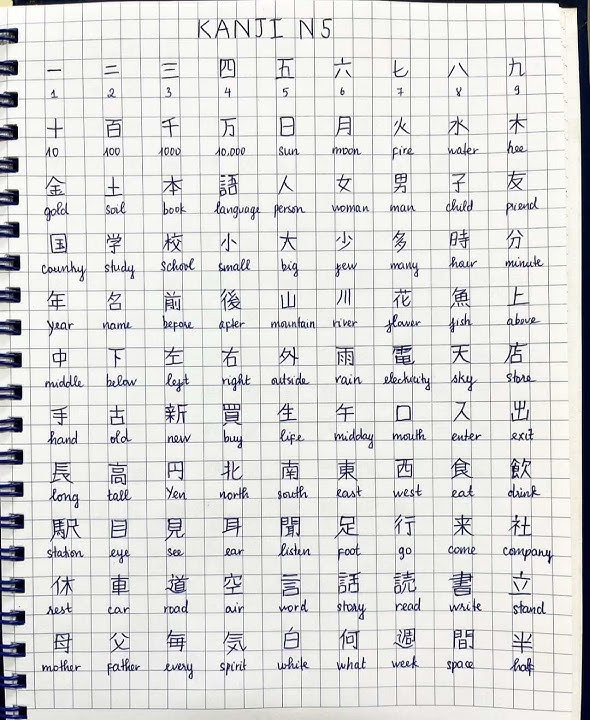 KANJI N5
一 二 三 四 五 六 七 八 九
1 2 3 4 5 6 7 8 9
十 百 千 万 日 月 火 水 木
10 100 1000 10.000 sun moon fire water tree
金 土 本 語 人 女 男 子 友
gold soil book language person woman man child friend
国 学 校 小 大 少 多 時 分
country study school small big few many hour minute
年 名 前 後 山 川 花 魚 上
year name before after mountain river flower fish above
中 下 左 右 外 雨 電 天 店
middle below left right outside rain electricity sky store
手 古 新 買 生 午 口 入 出
hand old new buy life midday mouth enter exit
長 高 円 北 南 東 西 食 飲
long tall Yen north south east west eat drink
駅 目 見 耳 聞 足 行 来 社
station eye see ear listen foot go come company
休 車 道 空 言 話 読 書 立
rest car road air word story read write stand
母 父 毎 気 白 何 週 間 半
mother father every spirit white what week space half